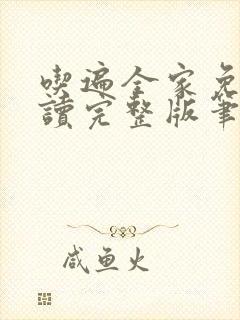 喫遍全家免
讀完整版筆
咸鱼火